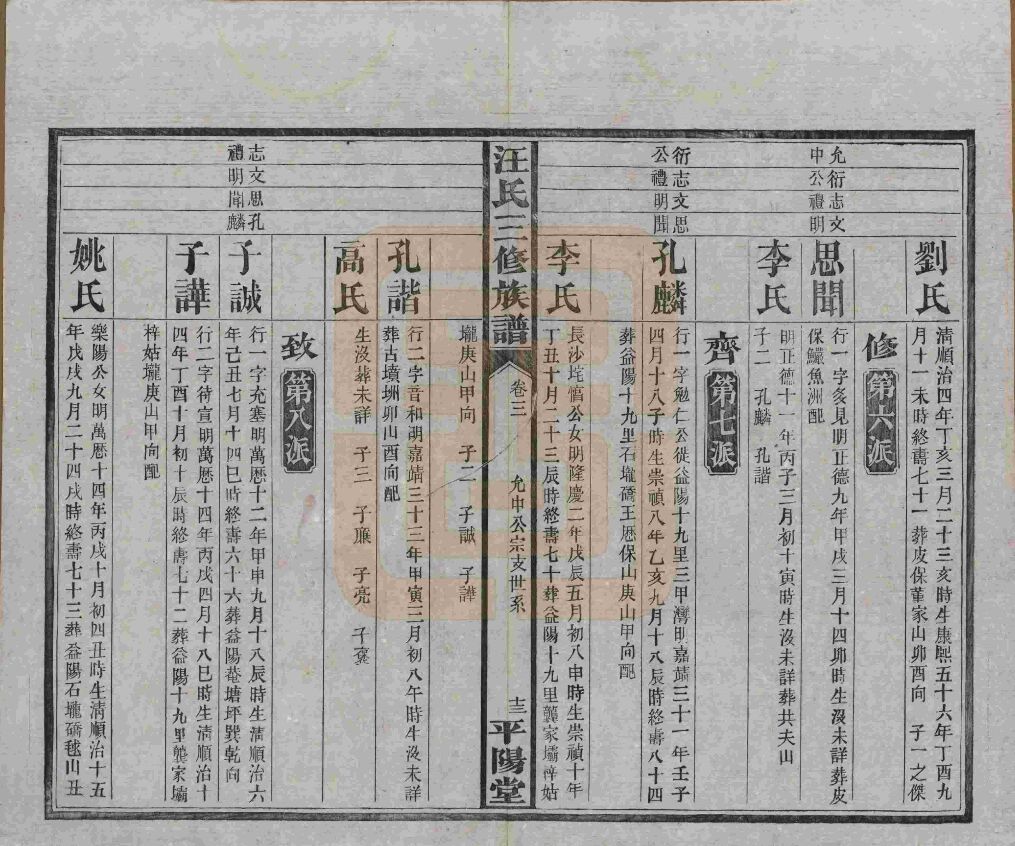 劉氏
清順治四年丁亥三月二十三亥時生康熙五十六年丁酉九
月十一未時終壽七十一葬皮保董家山卯酉向　子一之傑
修　第六派
允衍志文
申公禮明
思聞
行一字夋見明正德九年甲戌三月十四卯時生沒未詳葬皮
保鱺魚洲配
李氏
明正德十一年丙子三月初十寅時生沒未詳葬共夫山
子二　孔麟　孔諧
齊　第七派
衍志文思
公禮明聞
孔麟
行一字勉仁公徙益陽十九里三甲灣明嘉靖三十一年壬子
四月十八子時生崇禎八年乙亥九月十八辰時終壽八十四
葬益陽十九里石壠礄王愿保山庚山甲向配
李氏
長沙垞公女明隆慶二年戊辰五月初八申時生崇禎十年
丁丑十月二十三辰時終壽七十葬益陽十九里龔家壩梓姑
汪氏三修族譜
卷三
允申公宗支世系
十三
平陽堂
壠庚山甲向　子二　子誠　子譁
孔諧
行二字音和明嘉靖三十三年甲寅三月初八午時生沒未詳
葬古墳坿卯山酉向配
高氏
生沒葬未詳　子三　子廉　子亮　子褒
致　第八派
志文思孔
禮明聞麟
子誠
行一字充塞明萬歷十二年甲申九月十八辰時生清順治六
年己丑七月十四巳時終壽六十六葬益陽菴塘坪巽乾向
子譁
行二字待宣明萬歷十四年丙戌四月十八巳時生清順治十
四年丁酉十月初十辰時終壽七十二葬益陽十九里龔家壩
梓姑壠庚山甲向配
姚氏
樂陽公女明萬歷十四年丙戌十月初四丑時生清順治十五
年戊戌九月二十四戌時終壽七十三葬益陽石壠礄毬山丑